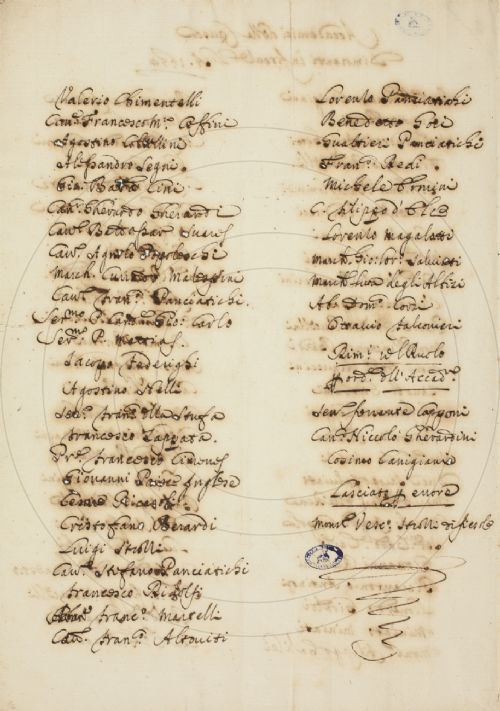 Valerio Chimentelli
Can.e Francesco M.a Ceffini
Agostino Coltellini
Alessandro Segni
Gio. Batta Cini
Can.e Gherardo Gherardi
Cav.e Baldassar Suares
Cav.e
March.
Cav.e Fran.co Panciatichi.
Ser.mo P. Card. Gio: Carlo
Ser.mo P. Mattias
Jacopo Federighi
Agostino Nelli
Sen.e Fran.co della Stufa
Francesco Zappata.
Francesco
Giovanni Inglese
Ricasoli
Cristofano Berardi
Luigi Strozzi
Cav.e Stefano Panciatichi
Francesco Ridolfi
Franc.o Martelli
Cav.e Fran.co Altoviti
Lorenzo Panciatichi
Benedetto Gori
Gualtieri Panciatichi
Fran.co Redi
Michele Ermini
C. Filippo d'Elci
Lorenzo Magalotti
March. Salviati
March. degli Albizi
Ab.e Dom.co Corsi
Orazio Falconieri
Rim.i del Ruolo
p ord.e dell'Accad.a
Sen.e Ferrante Capponi
Can.o Niccolò Gherardini
Cosimo Canigiani
Lasciato p errore
Mons.r Vesc.o Strozzi di Fiesole